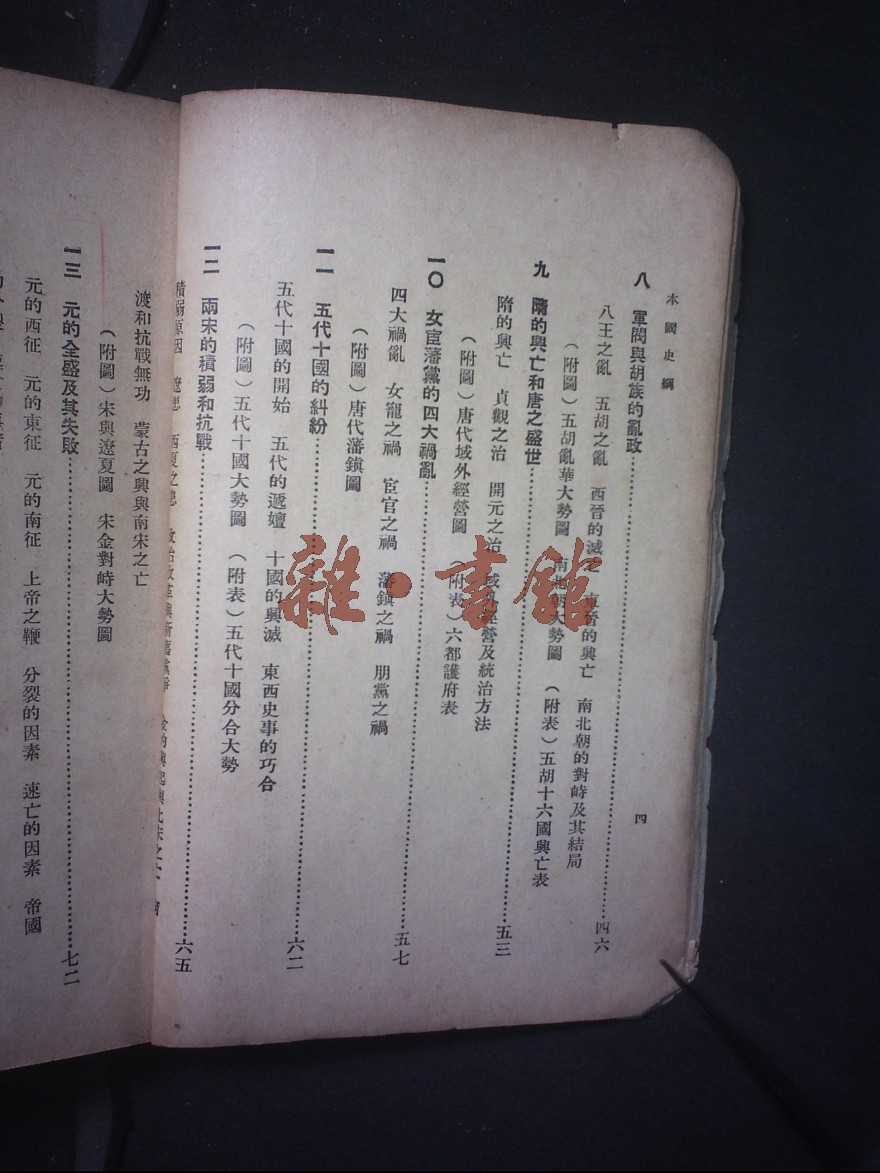 本國史綱
四
八　軍閥與胡族的亂政……四六
八王之亂　五胡之亂　西晉的滅亡　東晉的興亡　南北朝的對峙及其結局
（附圖）五胡亂華大勢圖　南北朝大勢圖　（附表）五胡十六國興亡表
九　隋的興亡和唐之盛世……五三
隋的興亡　貞觀之治　開元之治　域外經營及統治方法
（附圖）唐代域外經營圖　（附表）六都護府表
一〇　女宦藩黨的四大禍亂……五七
四大禍亂　女寵之禍　宦官之禍　藩鎮之禍　朋黨之禍
（附圖）唐代藩鎮圖
一一　五代十國的糾紛……六二
五代十國的開始　五代的遞嬗　十國的興滅　東西史事的巧合
（附圖）五代十國大勢圖　（附表）五代十國分合大勢
一二　兩宋的積弱和抗戰……六五
積弱原因　遼患　西夏之患　政治改革與新舊黨爭　金的興起與北宋之亡　南
渡和抗戰無功　蒙古之興與南宋之亡
（附圖）宋與遼夏圖　宋金對峙大勢圖
一三　元的全盛及其失敗……七二
元的西征　元的東征　元的南征　上帝之鞭　分裂的因素　速亡的因素　帝國
雜·書館